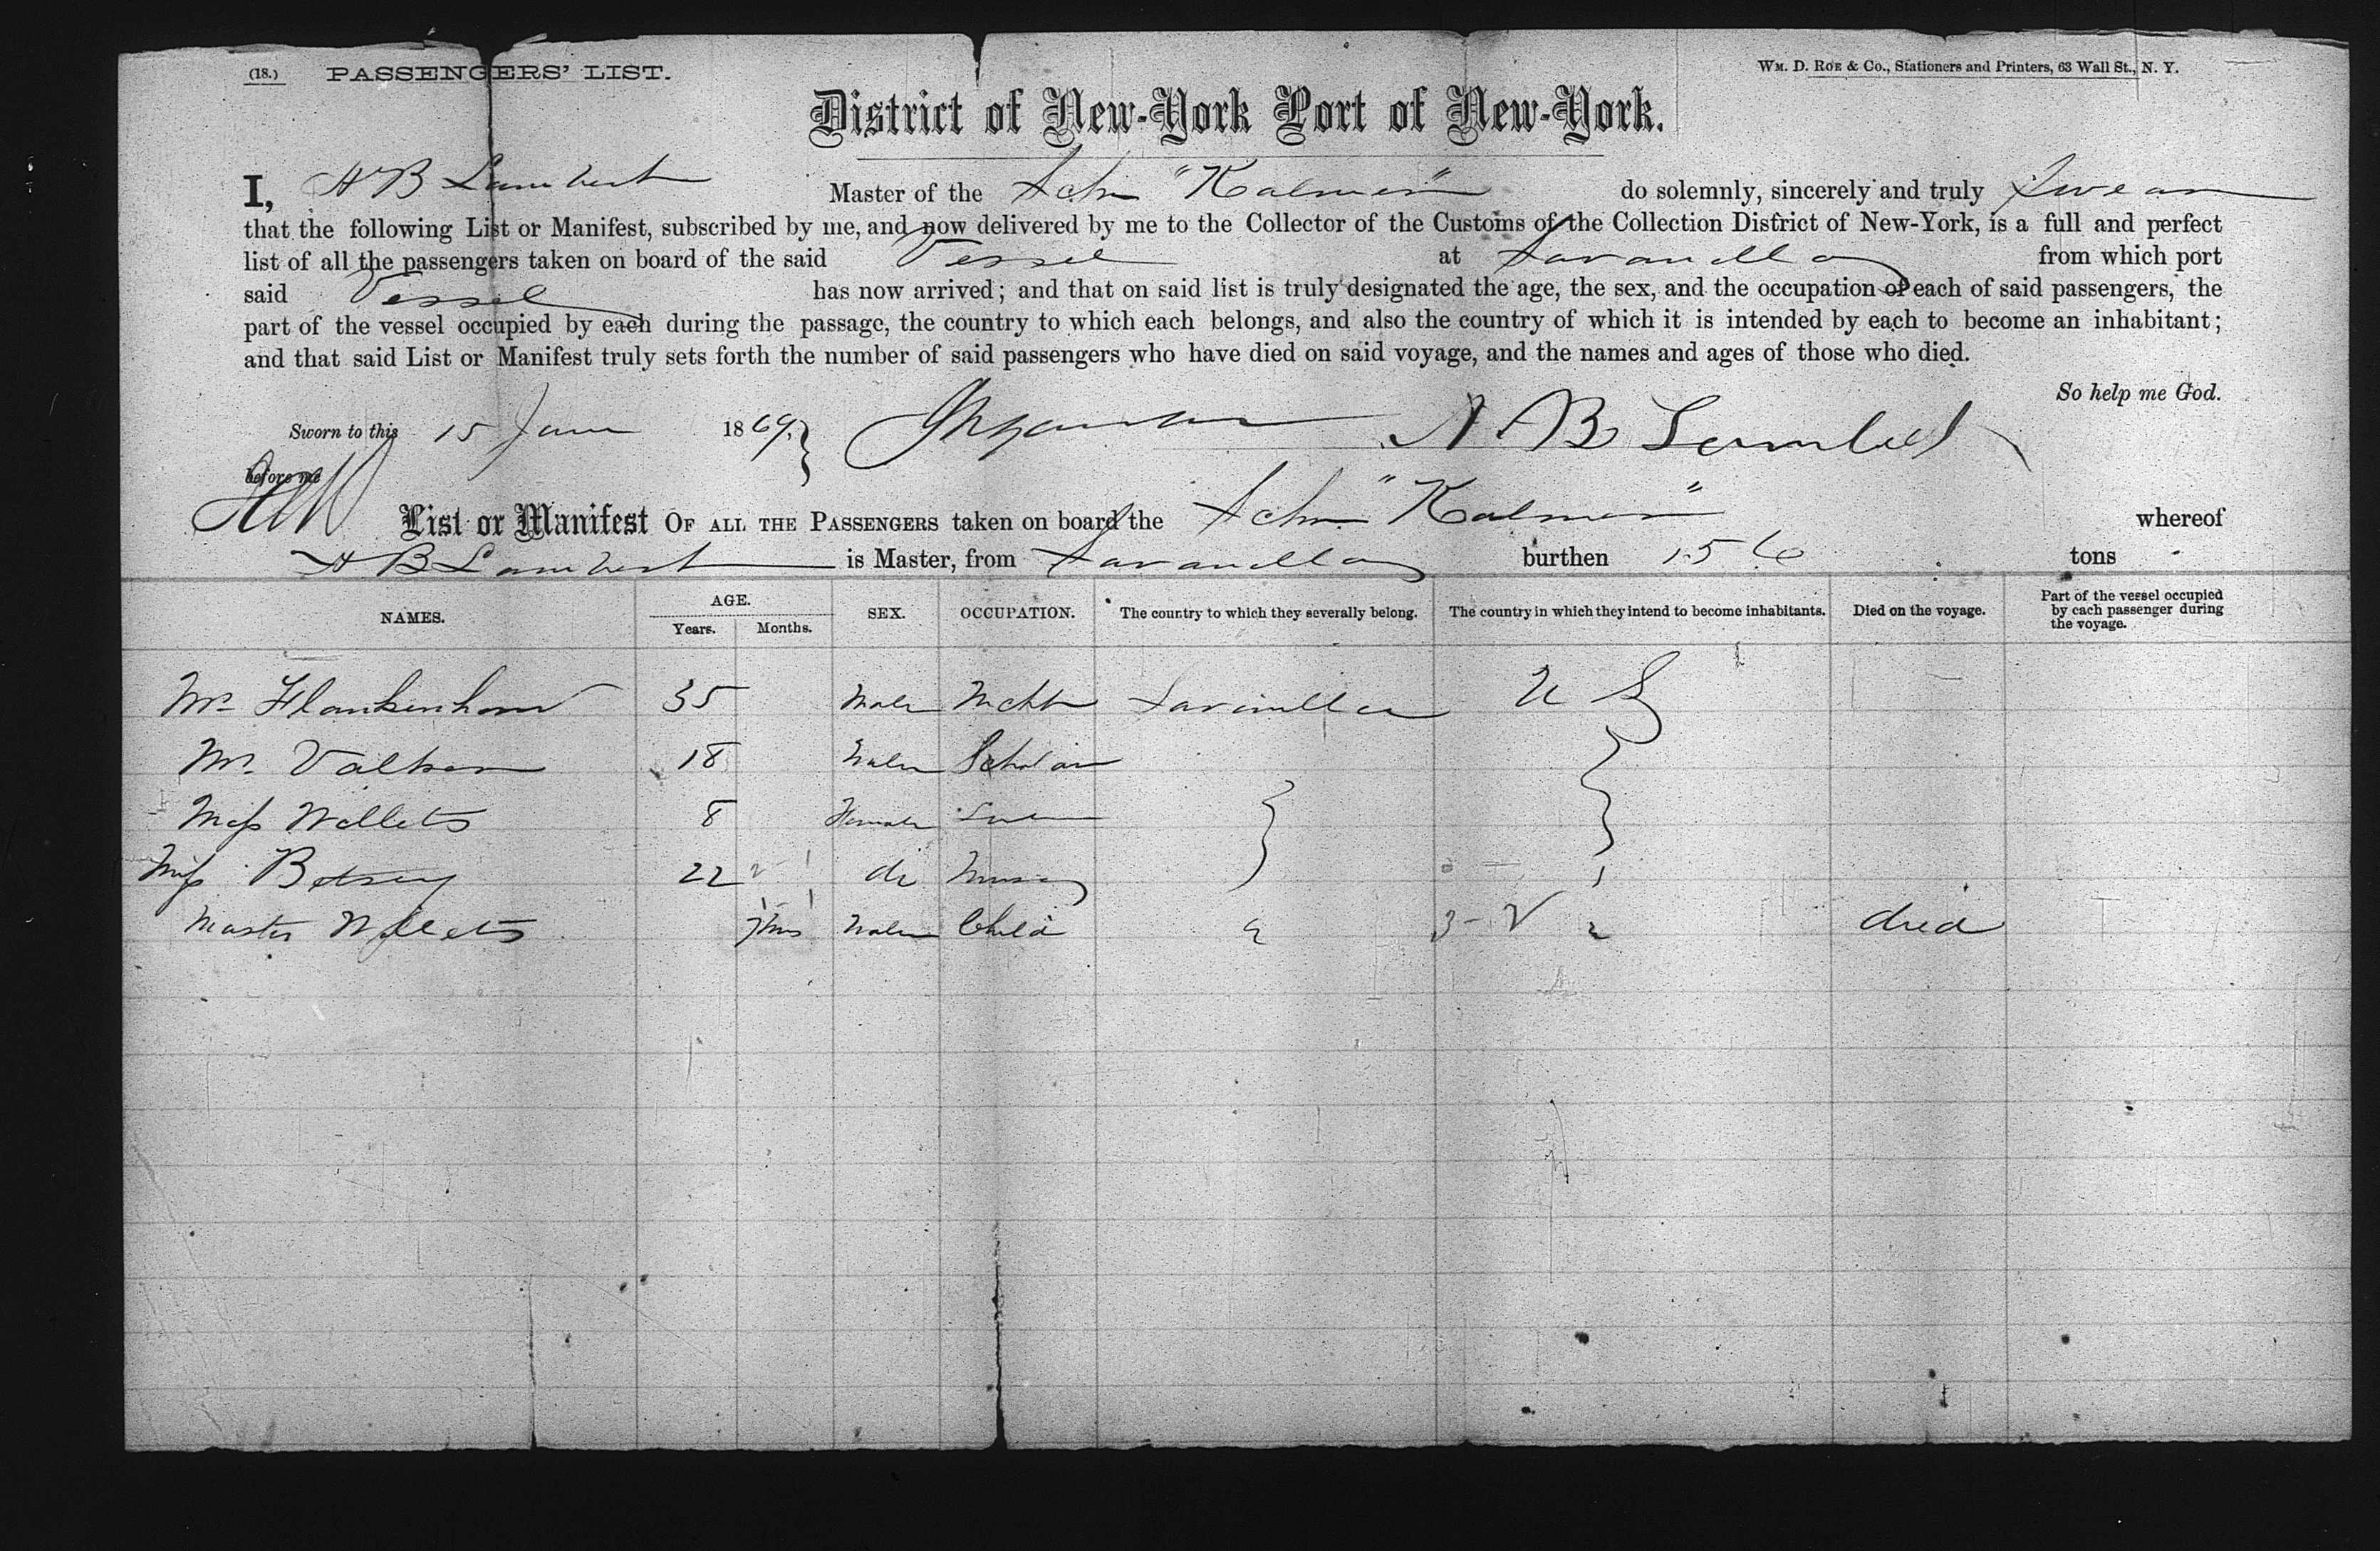 (18.) PASSENGERS' LIST.
WM. D. ROE & CO., Stationers and Printers, 63 Wall St., N. Y.
District of New-York Port of New-York.
I, H B Lambert Master of the Schr do solemnly, sincerely and truly Swear
that the following List or Manifest, subscribed by me, and now delivered by me to the Collector of the Customs of the Collection District of New-York, is a full and perfect
list of all the passengers taken on board of the said Vessel at Savanilla from which port
said Vessel has now arrived; and that on said list is truly designated the age, the sex, and the occupation of each of said passengers, the
part of the vessel occupied by each during the passage, the country to which each belongs, and also the country of which it is intended by each to become an inhabitant;
and that said List or Manifest truly sets forth the number of said passengers who have died on said voyage, and the names and ages of those who died.
So help me God.
Sworn to this 15 June 1869. H B Lambert
before me
List or Manifest OF ALL THE PASSENGERS taken on board the Schr whereof
H B Lambert is Master, from Savanilla burthen 156 tons
NAMES. AGE. Years. Months. SEX. OCCUPATION. The country to which they severally belong. The country in which they intend to become inhabitants. Died on the voyage. Part of the vessel occupied by each passenger during the voyage.
Mr 35 Male Mcht Savanilla U S
Mr. 18 Male Scholar
Miss Willets 8 Female
Miss Betsey 22 do
Master Willets 7 Mos Male Child died